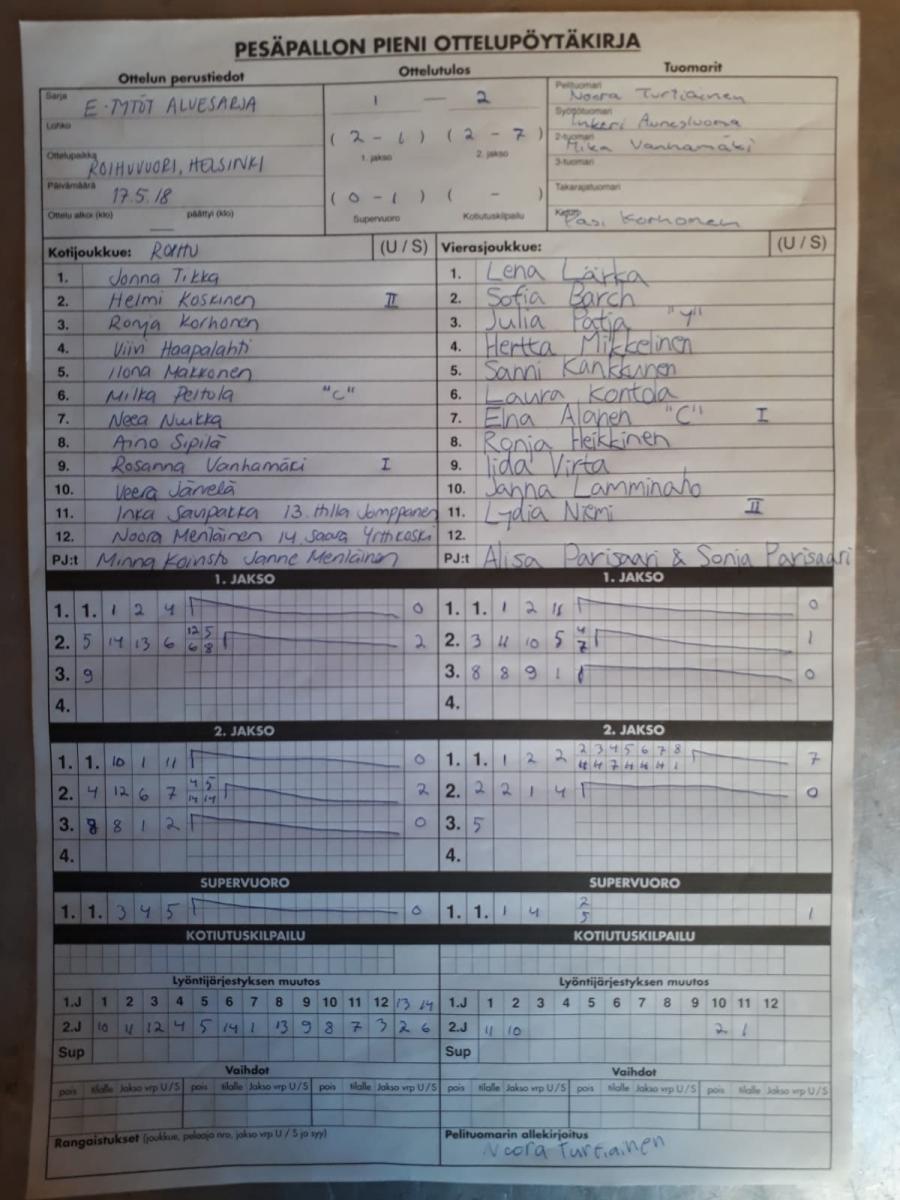 PESÄPALLON PIENI OTTELUPÖYTÄKIRJA
Ottelun perustiedot Ottelutulos Tuomarit
Sarja E-TYTÖT ALUESARJA
Lohko
Ottelupaikka ROIHUVUORI, HELSINKI
Päivämäärä 17.5.18
Ottelu alkoi (klo) päättyi (klo)
1 — 2
( 2 - 1 ) ( 2 - 7 )
1. jakso 2. jakso
( 0 - 1 ) ( - )
Supervuoro Kotiutuskilpailu
Pelituomari Noora Turtiainen
Syöttötuomari Inkeri
2-tuomari Mika Vanhamäki
3-tuomari
Takarajatuomari
Pasi Korhonen
Kotijoukkue: ROIHU (U / S) Vierasjoukkue: (U / S)
1. Jonna Tikka 1. Lena Lärka
2. Helmi Koskinen II 2. Sofia Barch
3. Ronja Korhonen 3. Julia Patja "Y"
4. Viivi Haapalahti 4. Hertta Mikkelinen
5. Ilona Makkonen 5. Sanni Kankkunen
6. Milka Peltola "C" 6. Laura Kontola
7. Neea Nuikka 7. Elna Alanen "C" I
8. Aino Sipilä 8. Ronja Heikkinen
9. Rosanna Vanhamäki I 9. Iida Virta
10. Veera Järvelä 10. Janna Lamminaho
11. Inka Savipakka 13. Hilla Jomppanen 11. Lydia Niemi II
12. Noora Mentäinen 14. Saara Yrttikoski 12.
PJ:t Minna Koinsto Janne Mentäinen PJ:t Alisa Parisaari & Sonja Parisaari
1. JAKSO 1. JAKSO
1. 1. 1 2 4 0 1. 1. 1 2 11 0
2. 5 14 13 6 12 5 2 2. 3 11 10 5 4 1
6 8 7
3. 9 3. 8 8 9 1 0
4. 4.
2. JAKSO 2. JAKSO
1. 1. 10 1 11 0 1. 1. 1 2 2 2 3 4 5 6 7 8 7
2. 4 12 6 7 4 5 2 2. 2 2 1 4 0
14 14
3. 8 8 1 2 0 3. 5
4. 4.
SUPERVUORO SUPERVUORO
1. 1. 3 4 5 0 1. 1. 1 4 2 1
5
KOTIUTUSKILPAILU KOTIUTUSKILPAILU
Lyöntijärjestyksen muutos Lyöntijärjestyksen muutos
1.J 1 2 3 4 5 6 7 8 9 10 11 12 13 14 1.J 1 2 3 4 5 6 7 8 9 10 11 12
2.J 10 11 12 4 5 14 1 13 9 8 7 3 2 6 2.J 11 10 2 1
Sup Sup
Vaihdot Vaihdot
pois tilalle Jakso vrp U/S pois tilalle Jakso vrp U/S pois tilalle Jakso vrp U/S pois tilalle Jakso vrp U/S pois tilalle Jakso vrp U/S pois tilalle Jakso vrp U/S
Rangaistukset (joukkue, pelaaja nro, jakso vrp U / S ja syy) Pelituomarin allekirjoitus
Noora Turtiainen